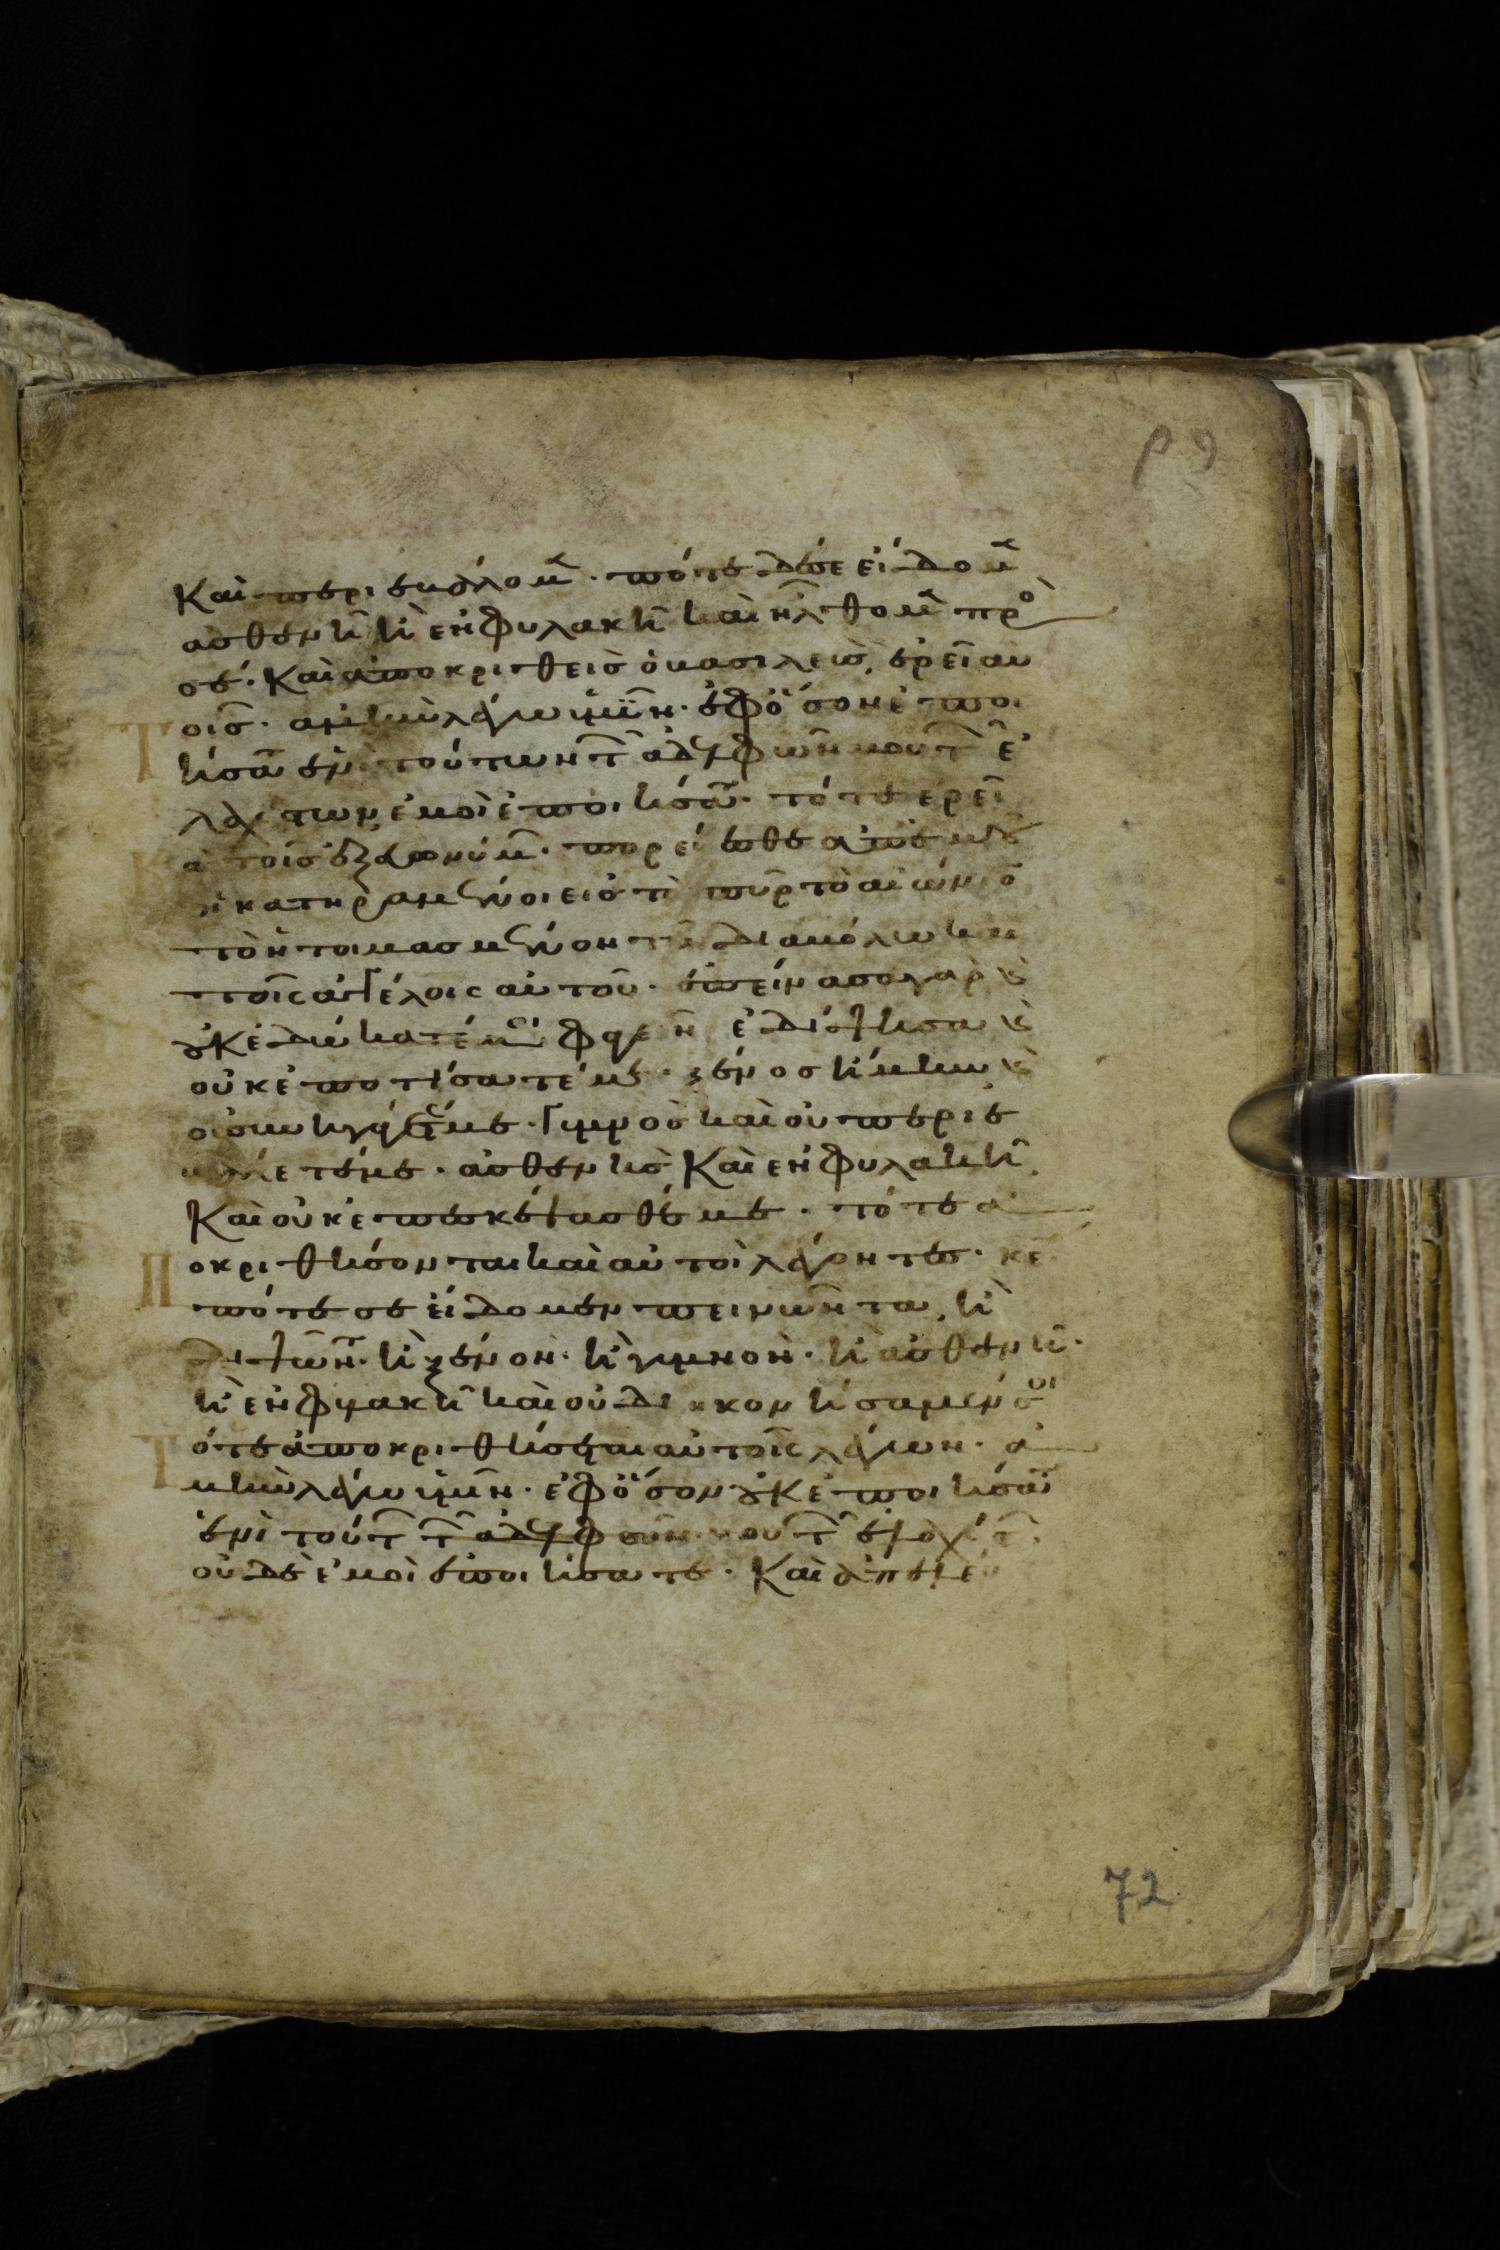 Και περιεβάλομεν· πότε δέσε είδομεν
ασθενῆ ἢ ἐν φυλακῆ καὶ ἤλθομεν πρὸ
σέ· Και αποκριθεισ ὁ βασιλεὺσ, ἐρεῖ αυ
οισ· αμὴν λέγω ὑμῖν· ἐφ ὅσον ἐποι
ήσατε ἑνὶ τούτων τῶν ἀδελφῶν μου τῶν ἐ
λαχίστων, ἐμοὶ ἐποιήσατε· τότε ἐρεῖ
τοῖσ ἐξ εὐωνύμων· πορεύεσθε ἀπ ἐμοῦ
οι κατηραμένοι εισ τὸ πῦρ τὸ αἰώνιον
τὸ ἡτοιμασμένον τῶ διαβόλω καὶ
τοῖς ἀγγέλοις αὐτοῦ· ἐπείνασα γαρ κὲ
οὐκ ἐδώκατέ μοι φαγεῖν ἐδίψησα κὲ
οὐκ ἐποτίσατέ με· ξένοσ ἤμην κὲ
οὐ συνηγάγετέ με· γυμνὸσ καὶ οὐ περιε
βάλετέ με· ἀσθενὴσ Καὶ ἐν φυλακῆ,
Καὶ οὐκ ἐπεσκέψασθέ με· τότε ἀ
οκριθήσονται καὶ αὐτοὶ λέγοντεσ· κε
πότε σε εἴδομεν πεινῶντα, ἢ
διψῶντα· ἢ ξένον· ἢ γυμνον· ἢ ἀσθενῆ·
ἢ ἐν φυλακῆ καὶ οὐ διηκονήσαμέν σοι
ότε ἀποκριθήσεται αὐτοῖς λέγων· ἀ
μὴν λέγω ὑμῖν· ἐφ ὅσον οὐκ ἐποιήσατε
ἑνὶ τούτων τῶν ἀδελφῶν μου τῶν ἐλαχίστων
οὐδὲ ἐμοὶ ἐποιήσατε· Καὶ ἀπελεύ
72